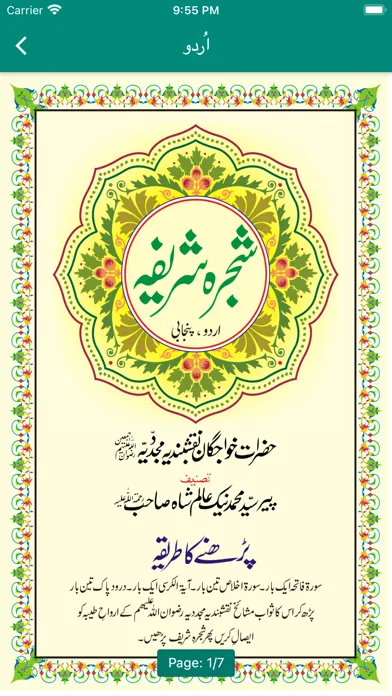 Carrier 9:55 PM
اُردو
شجرہ شریفہ
اردو ، پنجابی
حضرات خواجگان نقشبندیہ مجددیّہ رضوان اللہ علیہم اجمعین
تصنیف
پیر سیّد محمد نیک عالم شاہ صاحب رحمۃ اللہ علیہ
پڑھنے کا طریقہ
سورۃ فاتحہ ایک بار۔ سورۃ اخلاص تین بار۔ آیۃ الکرسی ایک بار۔ درود پاک تین بار
پڑھ کر اس کا ثواب مشائخ نقشبندیہ مجددیہ رضوان اللہ علیھم کے ارواحِ طیبہ کو
ایصال کریں پھر شجرہ شریف پڑھیں۔
Page: 1/7